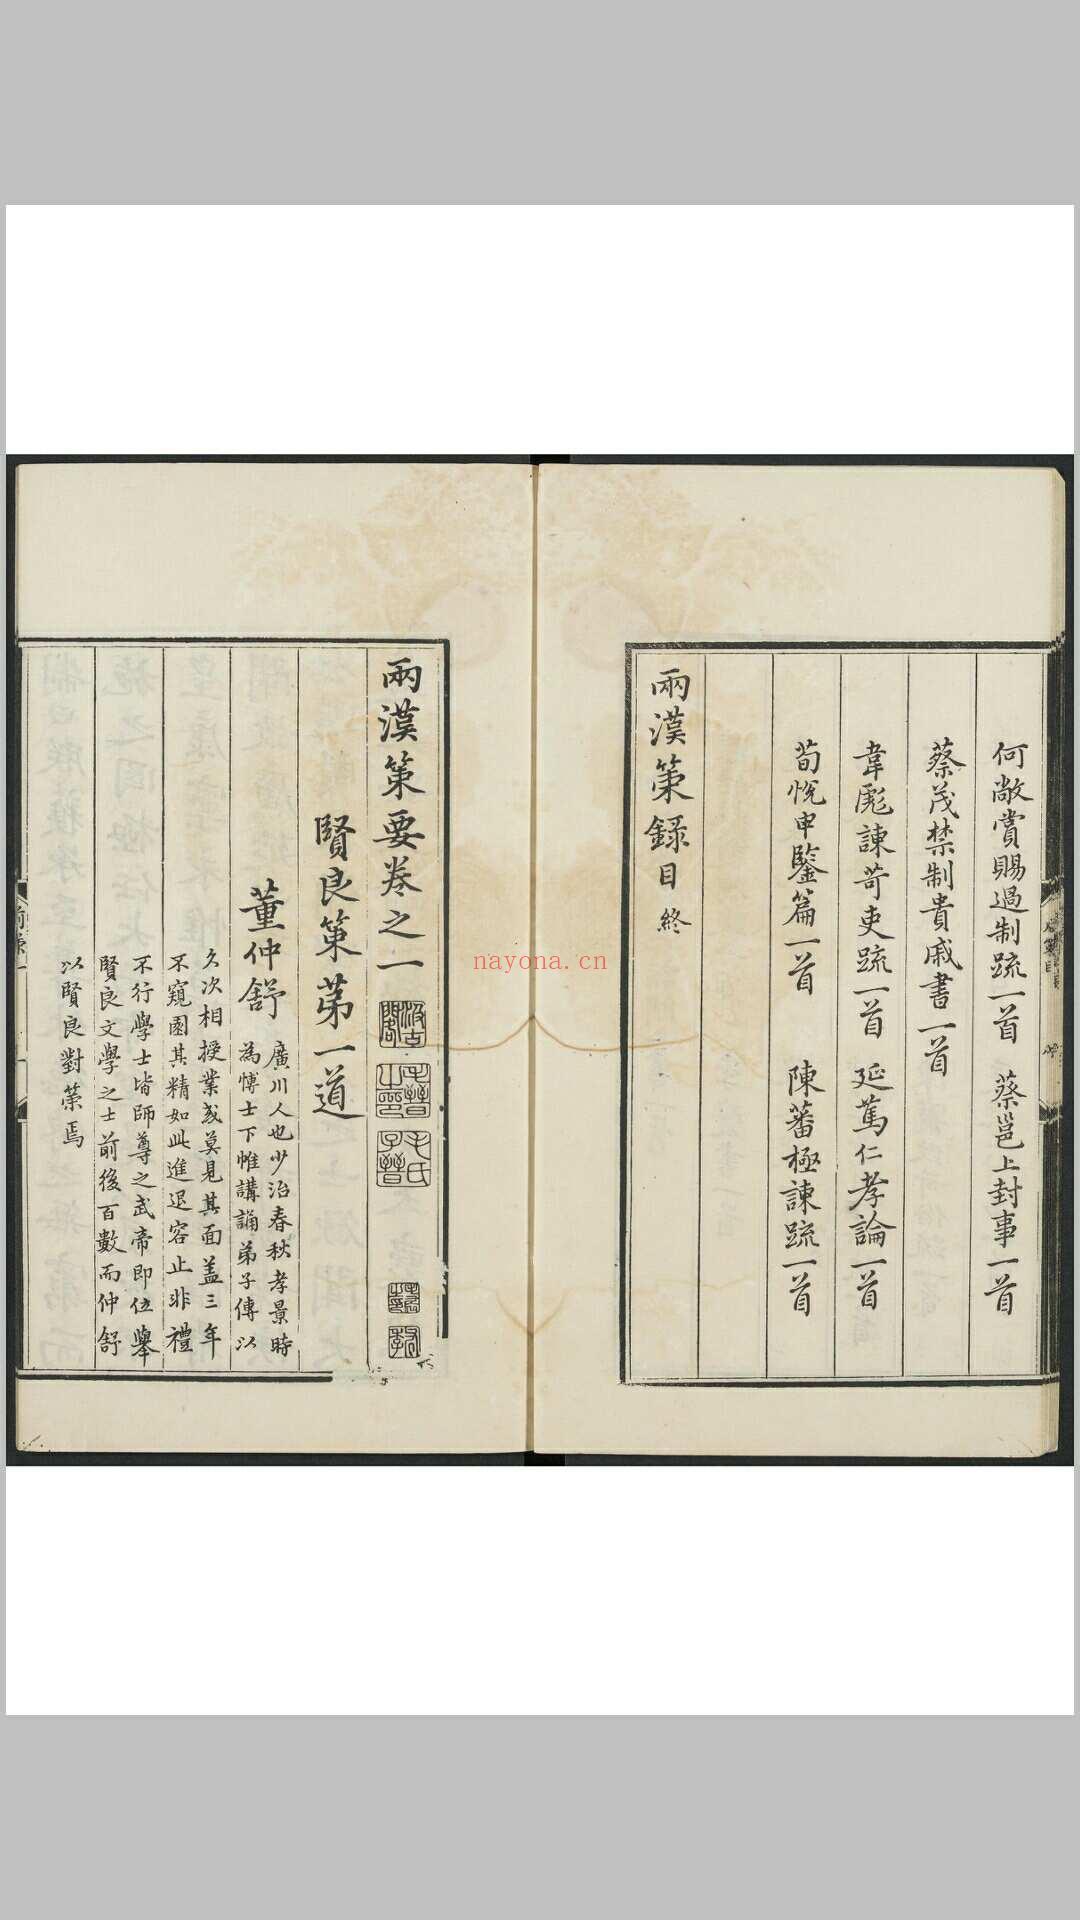 何敞賞賜過制疏一首　蔡邕上封事一首
蔡茂禁制貴戚書一首
韋彪諫苛吏疏一首　延篤仁孝論一首
荀悅申鑒篇一首　陳蕃極諫疏一首
兩漢策錄目終
兩漢策要卷之一
汲古閣
毛晉之印
毛氏子晉
賢良策第一道
董仲舒
廣川人也少治春秋孝景時
為博士下帷講誦弟子傳以
久次相授業或莫見其面盖三年
不窺園其精如此進退容止非禮
不行學士皆師尊之武帝即位舉
賢良文學之士前後百數而仲舒
以賢良對策焉
nayona.cn